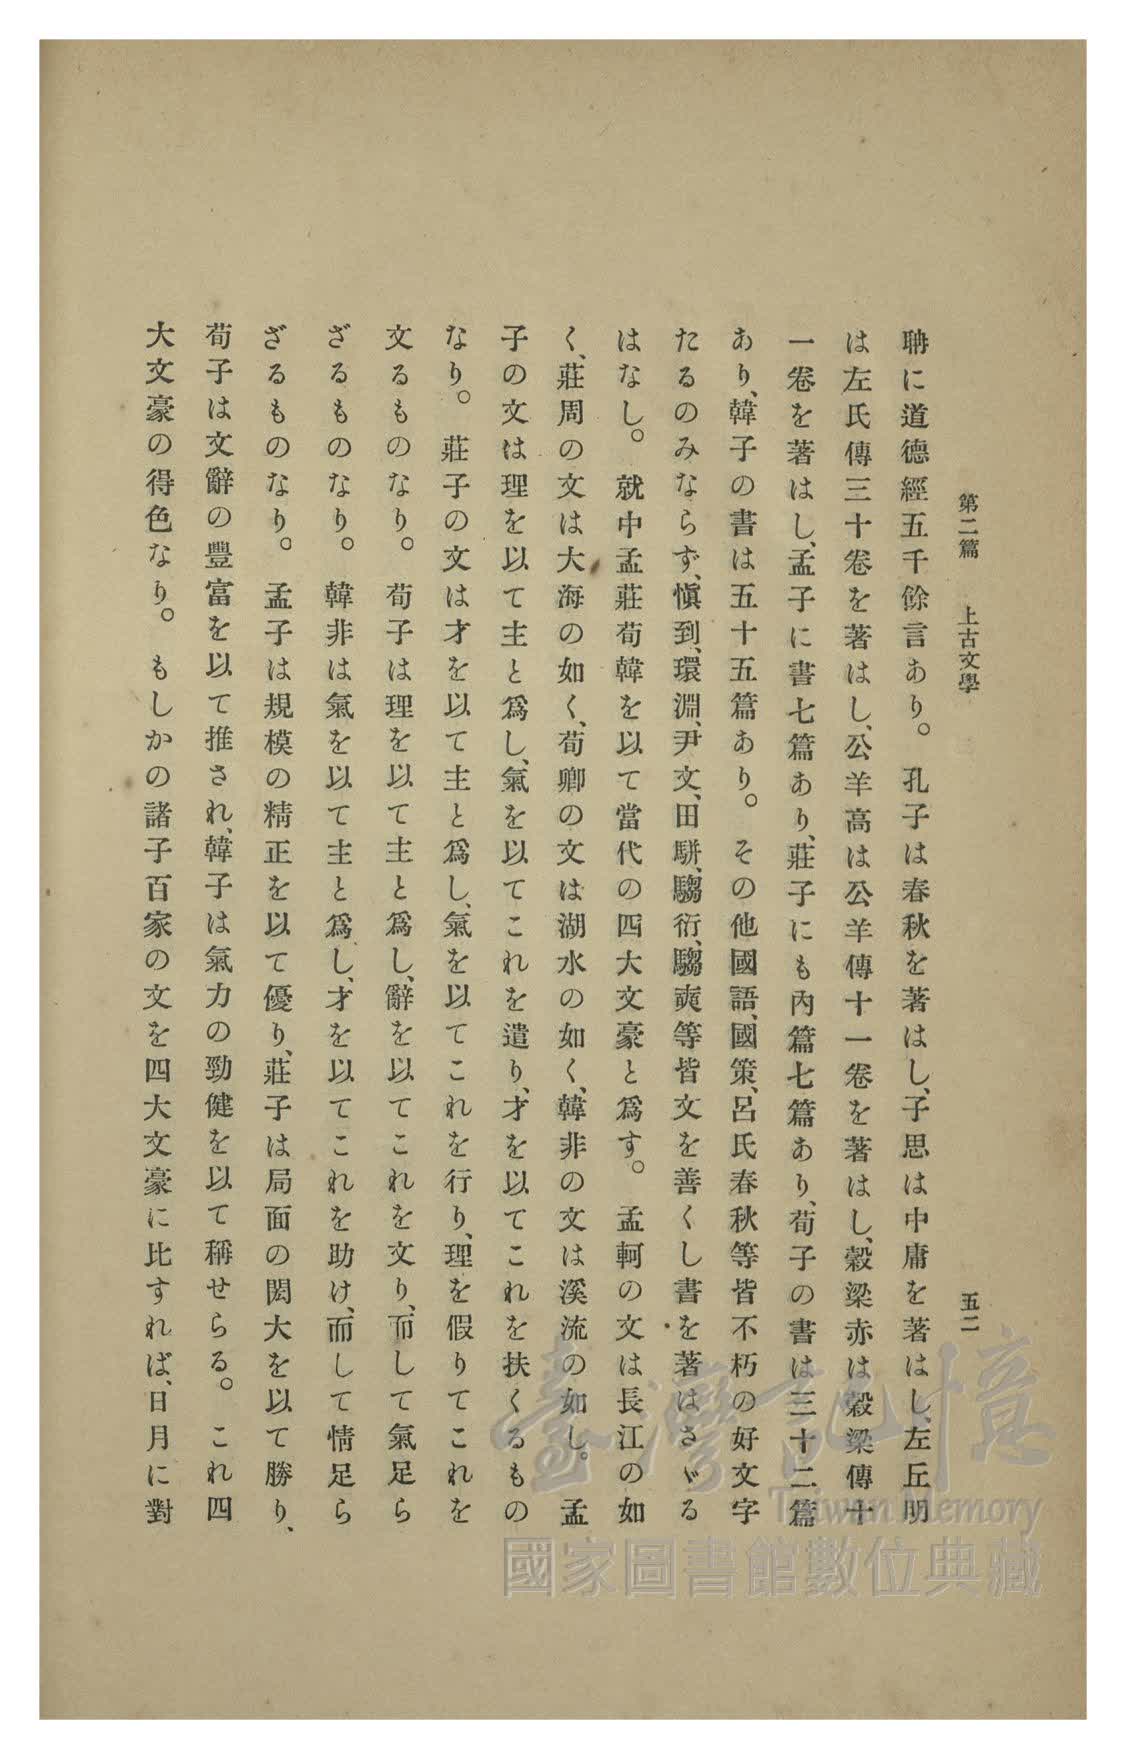 第二篇　上古文學　五二
聃に道德經五千餘言あり。孔子は春秋を著はし、子思は中庸を著はし、左丘明
は左氏傳三十卷を著はし、公羊高は公羊傳十一卷を著はし、穀梁赤は穀梁傳十
一卷を著はし、孟子に書七篇あり、莊子にも內篇七篇あり、荀子の書は三十二篇
あり、韓子の書は五十五篇あり。その他國語、國策、呂氏春秋等皆不朽の好文字
たるのみならず、愼到、環淵、尹文、田駢、騶衍、騶奭等皆文を善くし書を著はさゞる
はなし。就中孟莊荀韓を以て當代の四大文豪と爲す。孟軻の文は長江の如
く、莊周の文は大海の如く、荀卿の文は湖水の如く、韓非の文は溪流の如し。孟
子の文は理を以て主と爲し、氣を以てこれを遣り、才を以てこれを扶くるもの
なり。莊子の文は才を以て主と爲し、氣を以てこれを行り、理を假りてこれを
文るものなり。荀子は理を以て主と爲し、辭を以てこれを文り、而して氣足ら
ざるものなり。韓非は氣を以て主と爲し、才を以てこれを助け、而して情足ら
ざるものなり。孟子は規模の精正を以て優り、莊子は局面の閎大を以て勝り、
荀子は文辭の豐富を以て推され、韓子は氣力の勁健を以て稱せらる。これ四
大文豪の得色なり。もしかの諸子百家の文を四大文豪に比すれば、日月に對
臺灣記憶
Taiwan Memory
國家圖書館數位典藏